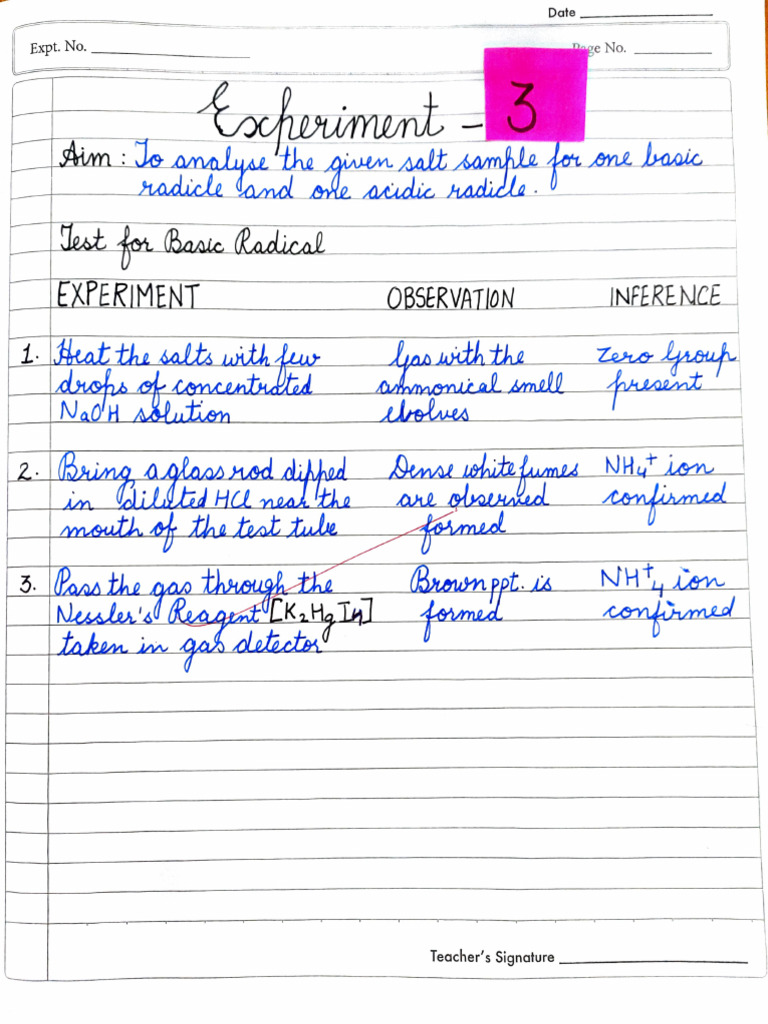 Date
Expt. No.
Page No.
Experiment - 3
Aim : To analyse the given salt sample for one basic
radicle and one acidic radicle.
Test for Basic Radical
EXPERIMENT OBSERVATION INFERENCE
1. Heat the salts with few Gas with the Zero Group
drops of concentrated ammonical smell present
NaOH solution evolves
2. Bring a glass rod dipped Dense white fumes NH4+ ion
in diluted HCl near the are observed confirmed
mouth of the test tube formed
3. Pass the gas through the Brown ppt. is NH+4 ion
Nessler's Reagent [K2HgI4] formed confirmed
taken in gas detector
Teacher's Signature